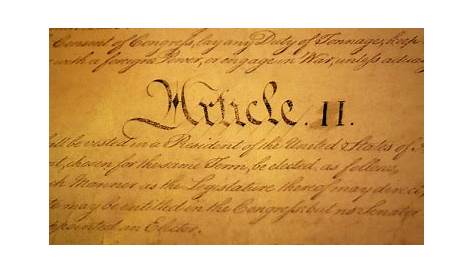 Consent of Congress, lay any Duty of Tonnage, keep
with a foreign Power, or engage in War, unless actua
Article. II.
ll be vested in a President of the United States of
nt, chosen for the same Term, be elected, as follows
ch Manner as the Legislature thereof may direct,
te may be entitled in the Congress: but no Senator
ppointed an Elector.